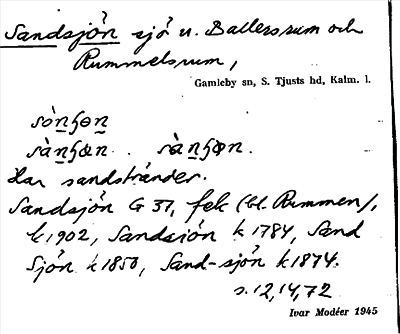 Sandsjön sjö u. Ballersrum och
Rummelsrum,
Gamleby sn, S. Tjusts hd, Kalm. l.
Har sandstränder.
Sandsjön G 37, fek (bl. Rummen),
k 1902, Sandsiön k 1784, Sand
Sjön k 1850, Sand-sjön k 1874.
s. 12, 14, 72
Ivar Modéer 1945